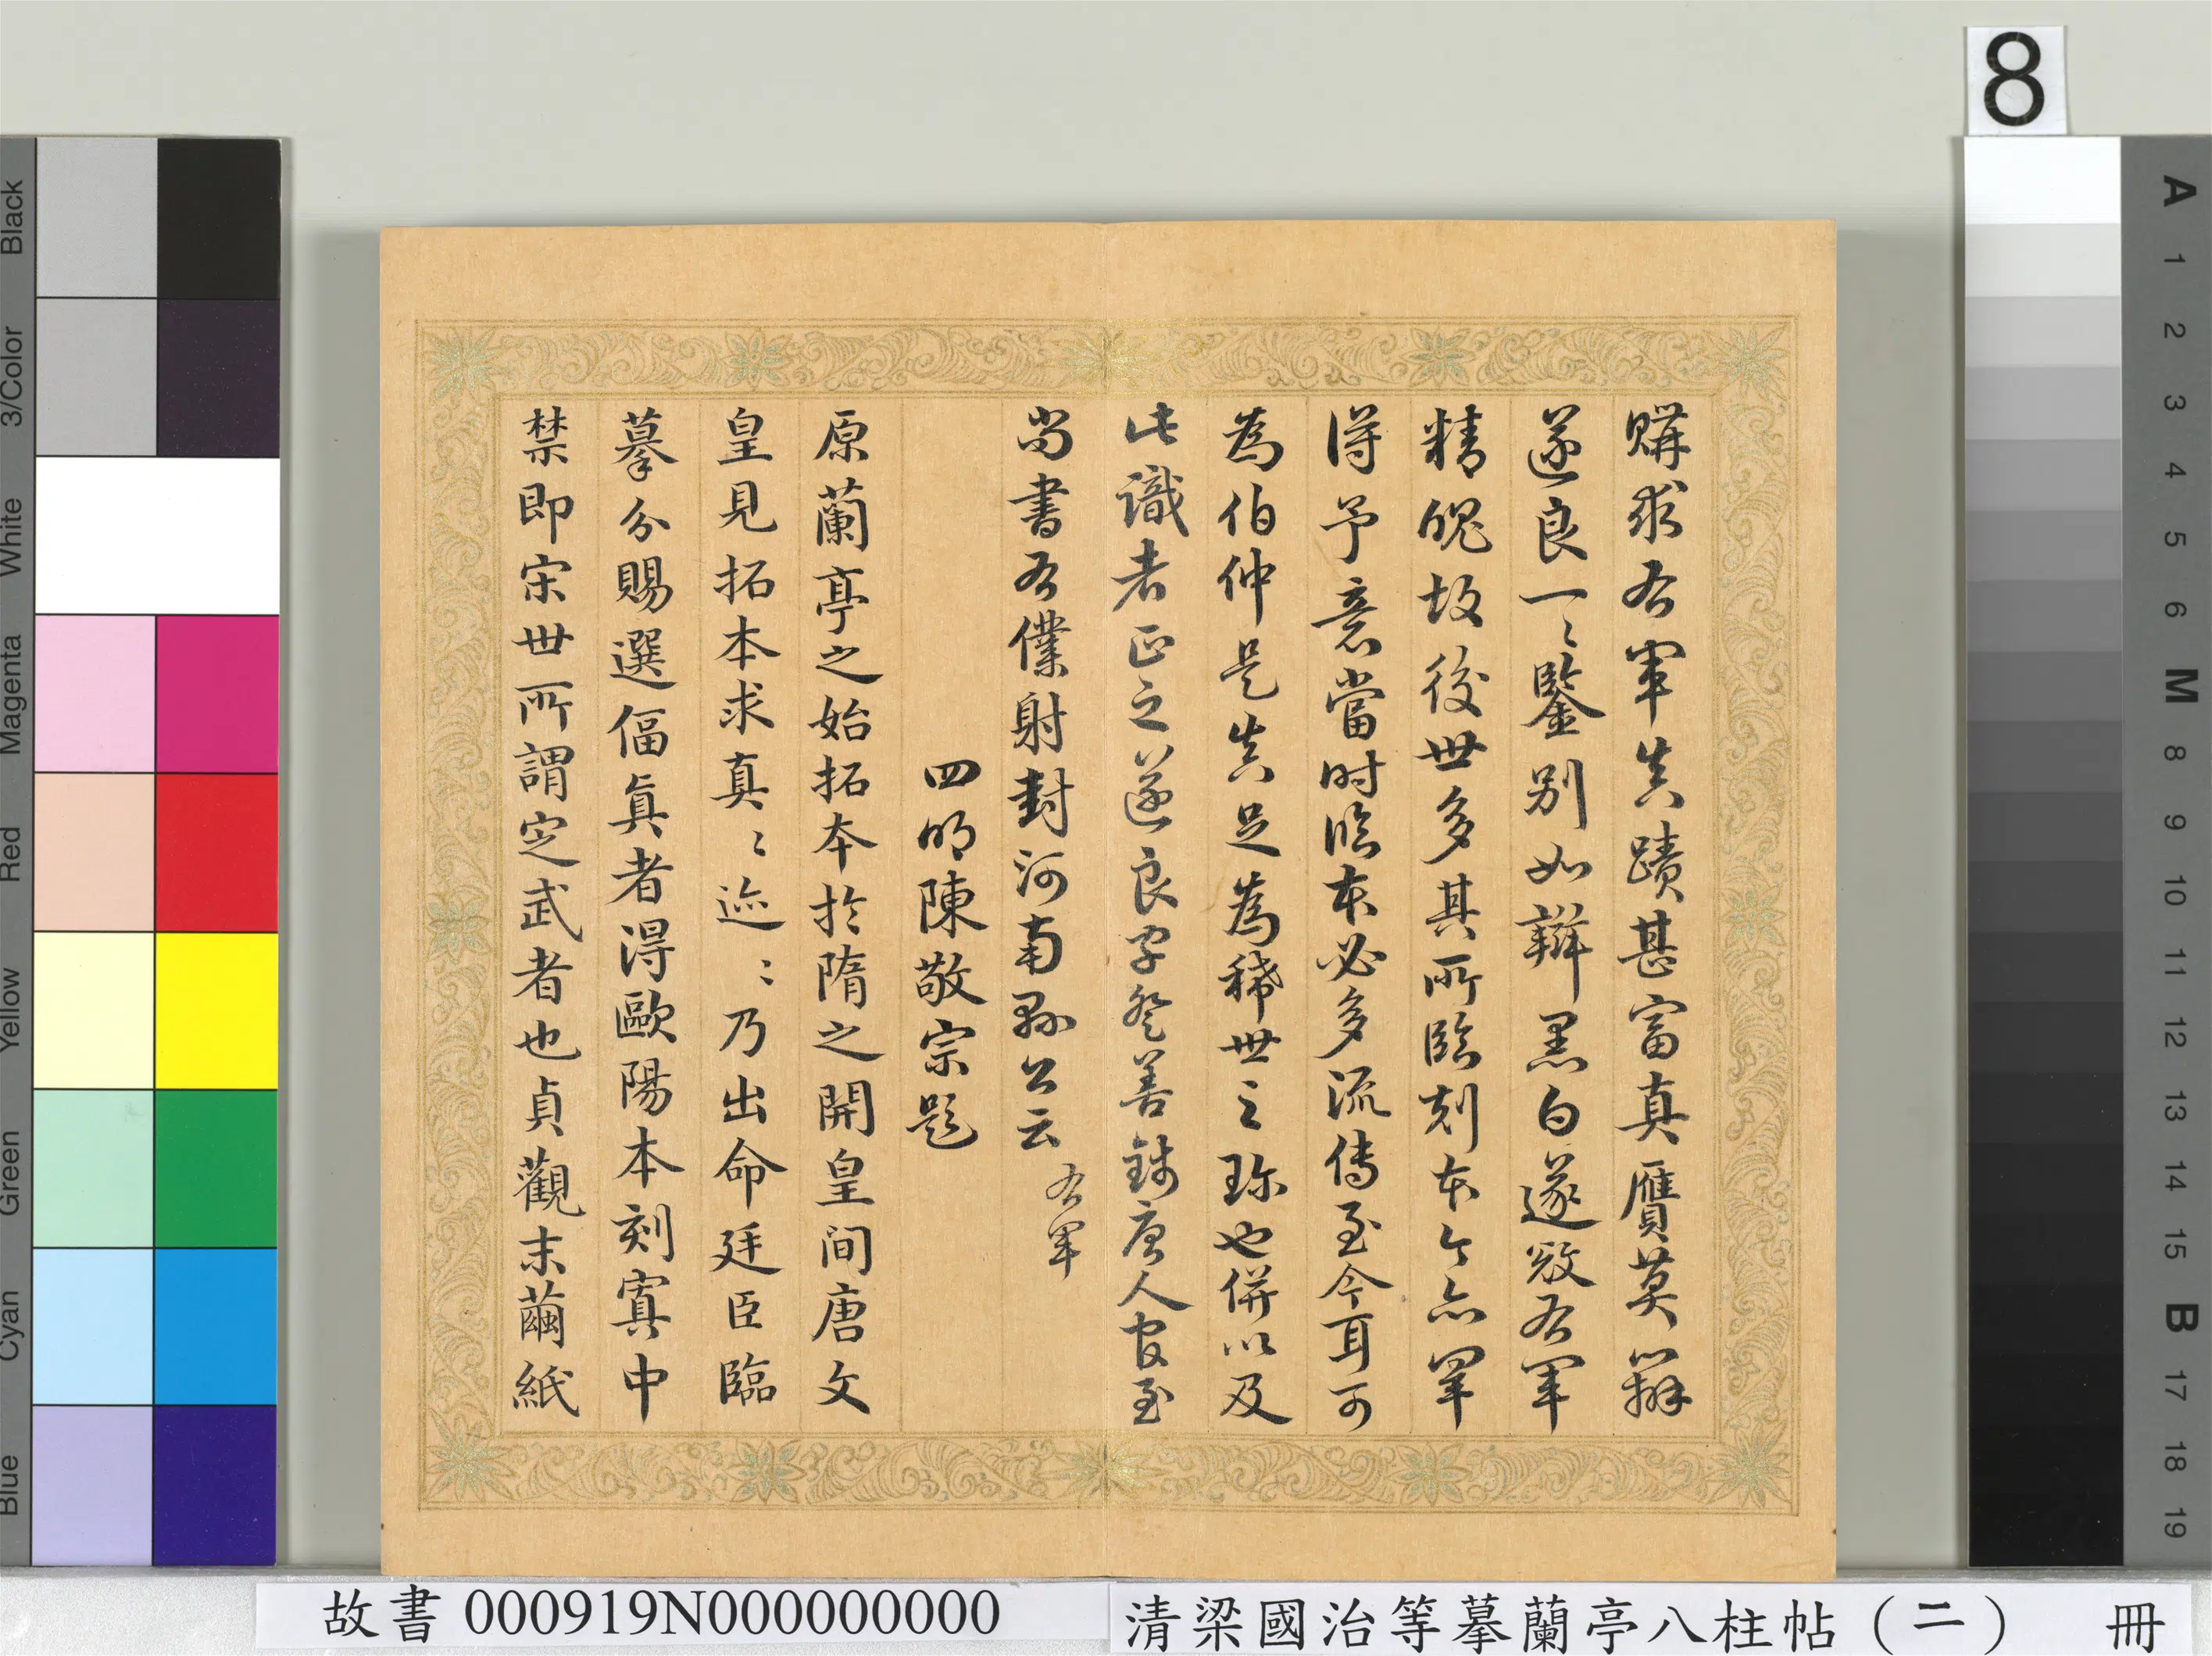 購求右軍真蹟甚富真贋莫辨
遂良一〻鑒別如辨黑白遂發右軍
精魄故後世多其所臨刻本今亦罕
得予意當时臨本必多流傳至今耳可
為伯仲是真足為稀世之珎也併以及
此識者正之遂良字登善錢唐人官至
尚書右僕射封河南縣公云
右軍
四明陳敬宗題
原蘭亭之始拓本於隋之開皇间唐文
皇見拓本求真〻迹〻乃出命廷臣臨
摹分賜選偪真者得歐陽本刻寘中
禁即宋世所謂定武者也貞觀末繭紙
8
A 1 2 3 4 5 6 M 8 9 10 11 12 13 14 15 B 17 18 19
Black
3/Color
White
Magenta
Red
Yellow
Green
Cyan
Blue
故書 000919N000000000
清梁國治等摹蘭亭八柱帖（二） 冊